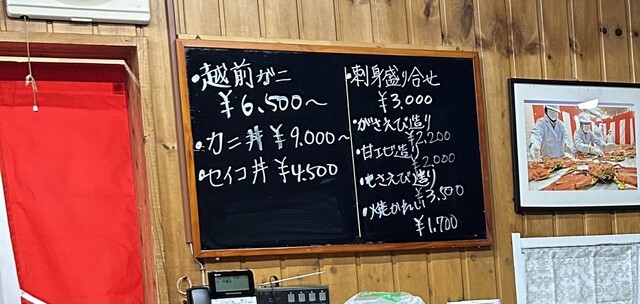 ・越前ガニ
￥6.500～
・カニ丼 ￥9.000～
・セイコ丼 ￥4.500
・刺身盛り合せ
￥3.000
・がさえび造り
￥2.200
・甘エビ造り
￥2.000
・もさえび造り
￥3.500
・焼がれい
￥1.700